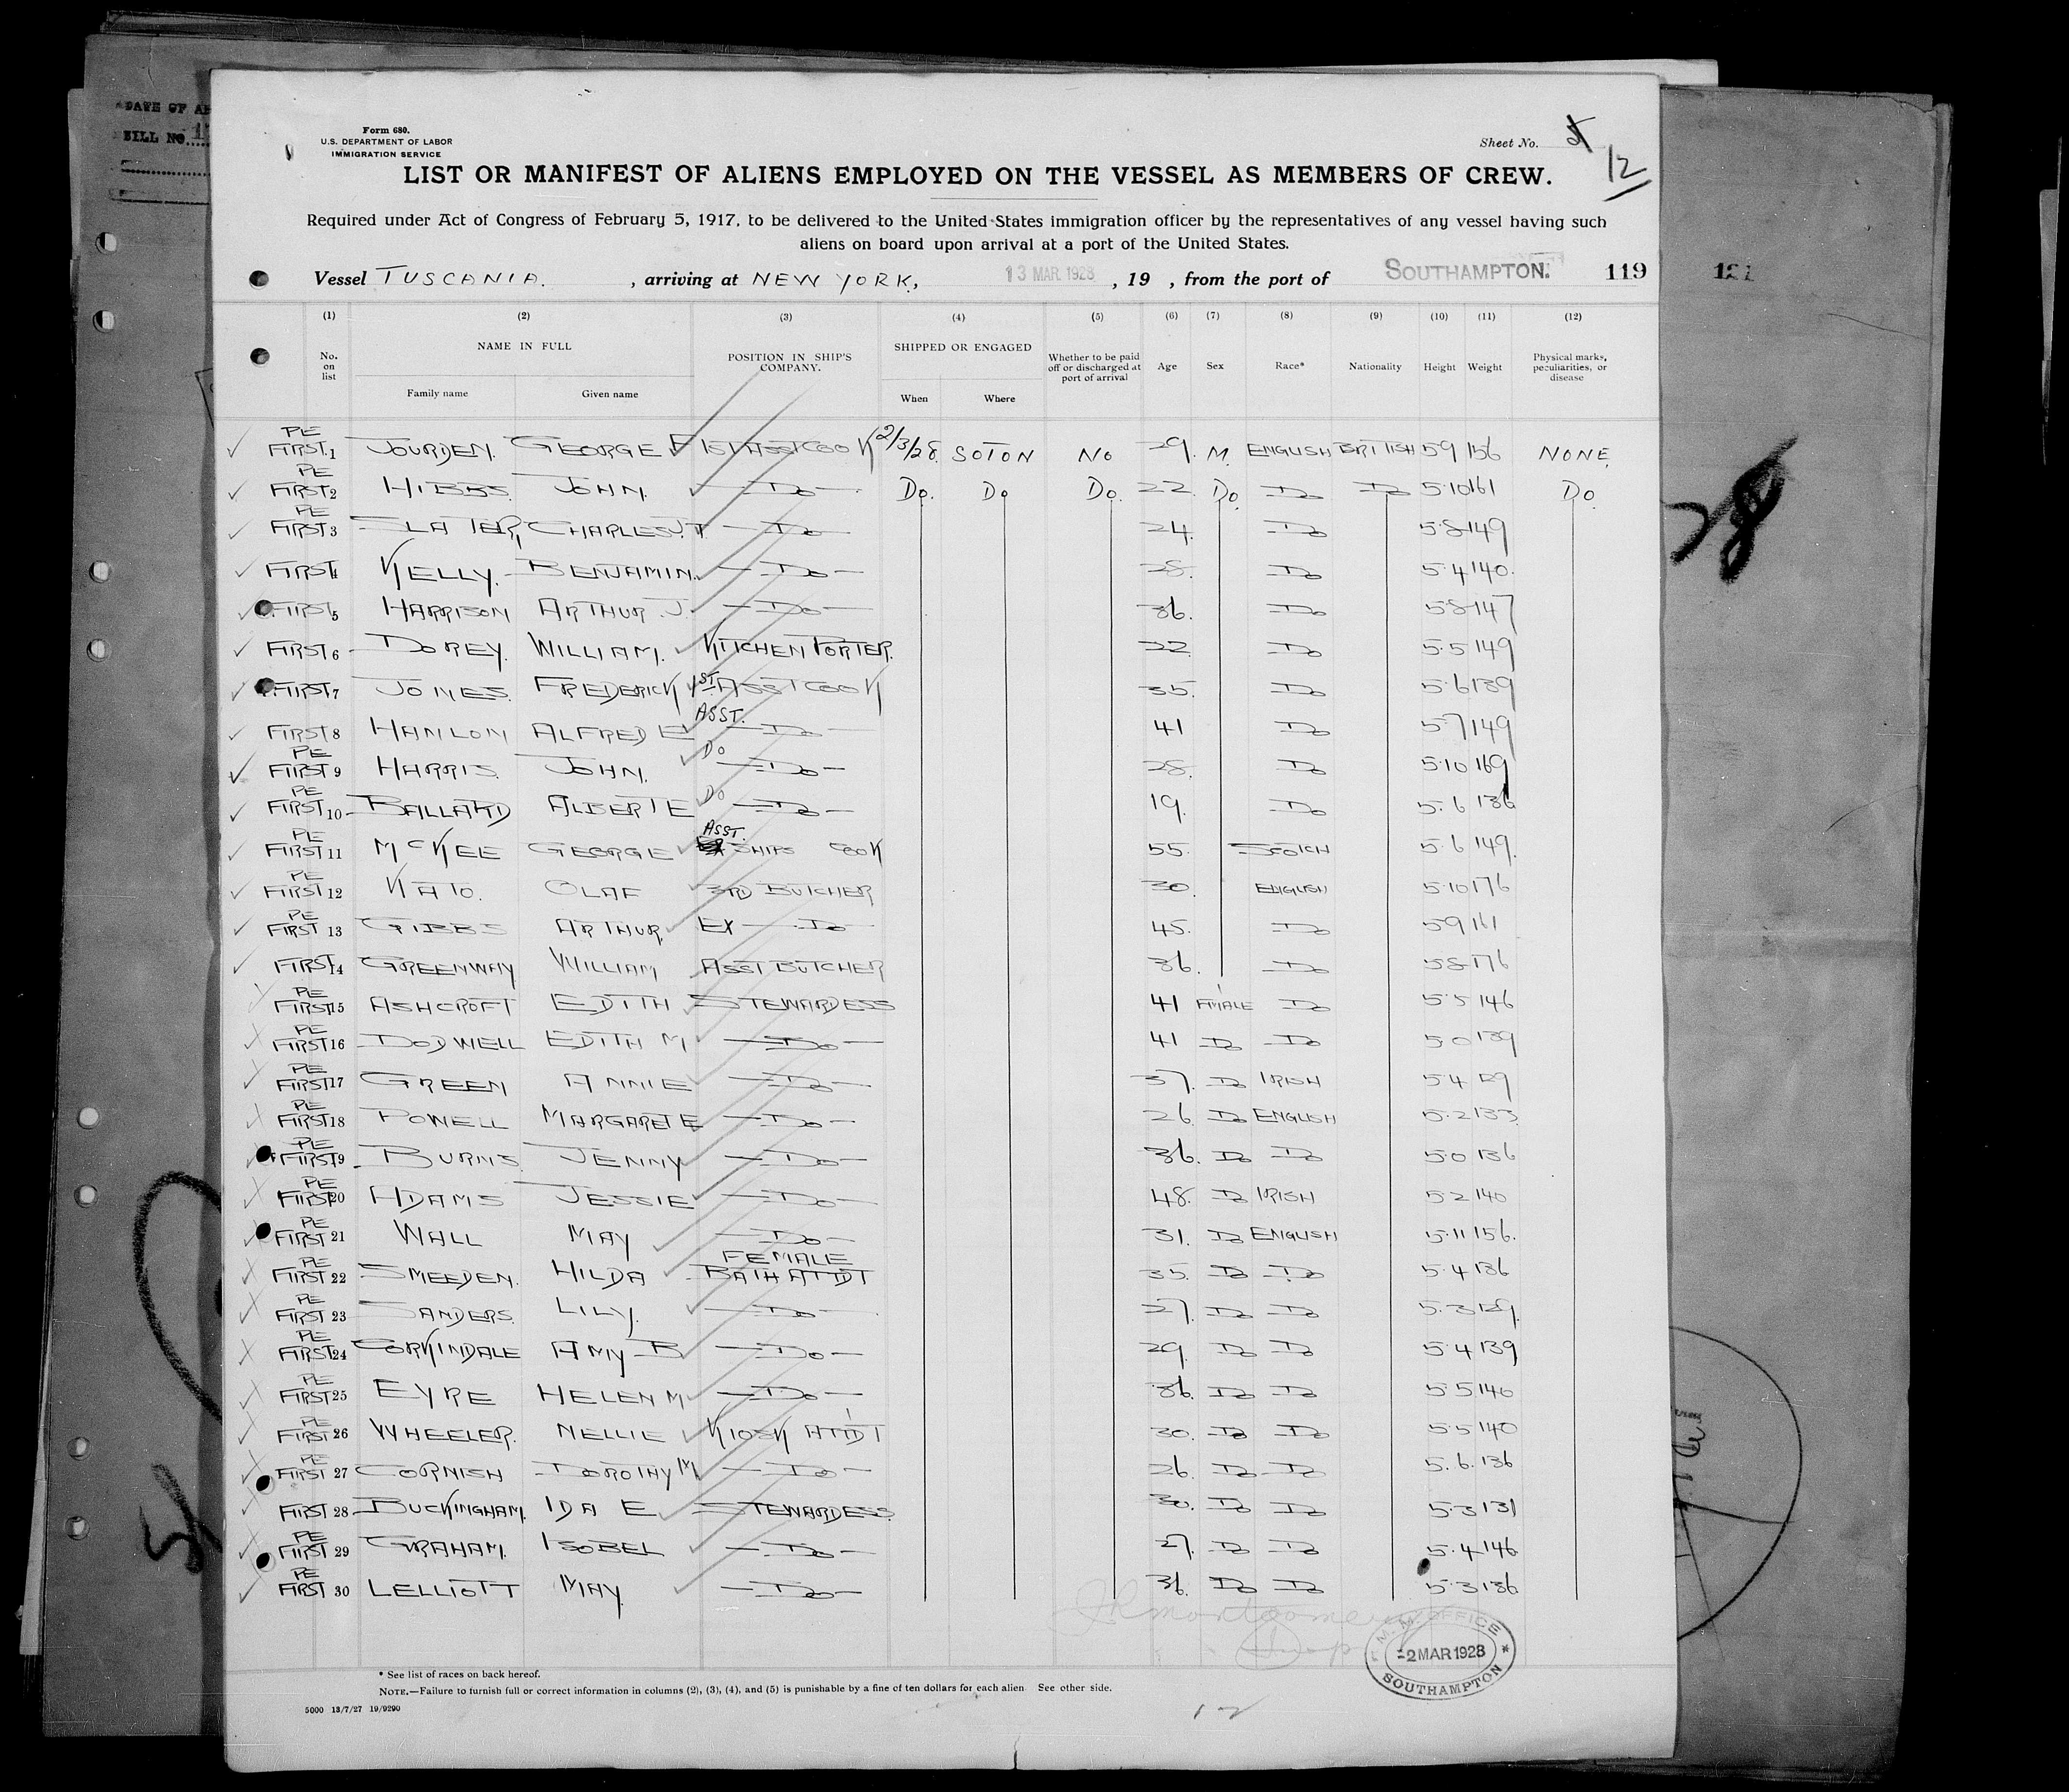 DATE OF AR
BILL No
Form 680.
U.S. DEPARTMENT OF LABOR
IMMIGRATION SERVICE
Sheet No.
12
LIST OR MANIFEST OF ALIENS EMPLOYED ON THE VESSEL AS MEMBERS OF CREW.
Required under Act of Congress of February 5, 1917, to be delivered to the United States immigration officer by the representatives of any vessel having such
aliens on board upon arrival at a port of the United States.
Vessel TUSCANIA. , arriving at NEW YORK, 13 MAR 1928 , 19 , from the port of SOUTHAMPTON. 119 121
(1) (2) (3) (4) (5) (6) (7) (8) (9) (10) (11) (12)
No. on list NAME IN FULL Family name Given name POSITION IN SHIP'S COMPANY. SHIPPED OR ENGAGED When Where Whether to be paid off or discharged at port of arrival Age Sex Race* Nationality Height Weight Physical marks, peculiarities, or disease
PE FIRST 1 JOURDEN. GEORGE F 1ST ASST COOK 2/3/28. SOTON NO 29. M. ENGLISH BRITISH 5 9 156 NONE.
PE FIRST 2 HIBBS. JOHN. Do Do. Do Do. 22. Do. Do Do 5.10 161 Do
PE FIRST 3 SLATER, CHARLES J.T. Do 24. Do 5.8 149
FIRST 4 KELLY. BENJAMIN. Do 28. Do 5.4 140.
FIRST 5 HARRISON ARTHUR. J. Do 36. Do 5.8 147
FIRST 6 DOREY. WILLIAM. KITCHEN PORTER. 22 Do 5.5 149
FIRST 7 JONES. FREDERICK 1ST ASST COOK 35. Do 5.6 139
FIRST 8 HANLON ALFRED E ASST. Do 41 Do 5.7 149
PE FIRST 9 HARRIS. JOHN. Do Do 28. Do 5.10 169
PE FIRST 10 BALLARD ALBERT E Do Do 19. Do 5.6 136
PE FIRST 11 McKEE GEORGE ASST. SHIPS COOK 55. SCOTCH 5.6 149.
PE FIRST 12 KATO. OLAF 3RD BUTCHER 30. ENGLISH 5.10 176
PE FIRST 13 GIBBS ARTHUR. EX Do 45. Do 5 9 161
FIRST 14 GREENWAY WILLIAM ASST BUTCHER 36. Do 5.8 176
PE FIRST 15 ASHCROFT EDITH STEWARDESS 41 FMALE Do 5.5 146
PE FIRST 16 DODWELL EDITH M Do 41 Do Do 5.0 139
PE FIRST 17 GREEN ANNIE Do 37. Do IRISH 5.4
PE FIRST 18 POWELL MARGARET E Do 26. Do ENGLISH 5.2 133
PE FIRST 19 BURNS. JENNY Do 36. Do Do 5.0 136
PE FIRST 20 ADAMS JESSIE Do 48. Do IRISH 5.2 140
PE FIRST 21 WALL MAY Do 31. Do ENGLISH 5.11 156.
PE FIRST 22 SMEEDEN. HILDA FEMALE BATH ATTDT 35. Do Do 5.4 136
PE FIRST 23 SANDERS. LILY. Do 27. Do Do 5.3 129.
PE FIRST 24 CORKINDALE AMY B Do 29. Do Do 5.4 139
PE FIRST 25 EYRE HELEN M Do 36. Do Do 5.5 140
PE FIRST 26 WHEELER. NELLIE KIOSK ATTDT 30. Do Do 5.5 140
PE FIRST 27 CORNISH DOROTHY M Do 26. Do Do 5.6. 136
FIRST 28 BUCKINGHAM. IDA E STEWARDESS. 30. Do Do 5.3 131
PE FIRST 29 GRAHAM. ISOBEL Do 27. Do Do 5.4 146
PE FIRST 30 LELLIOTT MAY Do 36. Do Do 5.3 136
M. M. OFFICE
2 MAR 1928
SOUTHAMPTON
* See list of races on back hereof.
NOTE.—Failure to furnish full or correct information in columns (2), (3), (4), and (5) is punishable by a fine of ten dollars for each alien See other side.
5000 13/7/27 19/9290
12